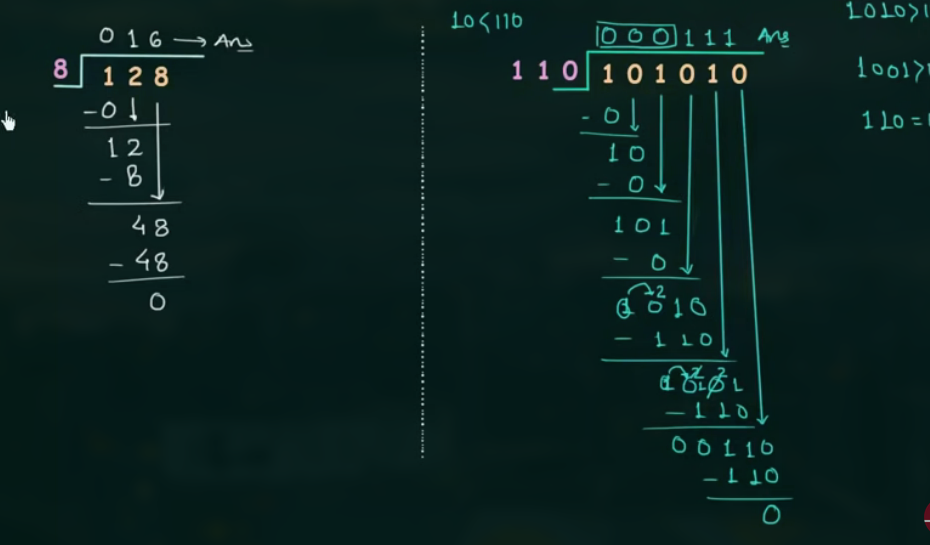 0 1 6 → Ans
8 1 2 8
- 0
1 2
- 8
4 8
- 4 8
0
10 < 110
0 0 0 1 1 1 Ans
1 1 0 1 0 1 0 1 0
- 0
1 0
- 0
1 0 1
- 0
1 0 2 1 0
- 1 1 0
1 0 0 1
- 1 1 0
0 0 1 1 0
- 1 1 0
0
1010 >
1001 >
110 =